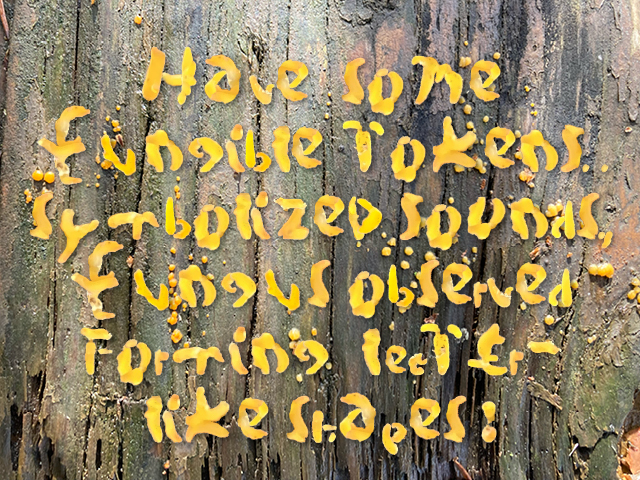 Have some
fungible Tokens.
symbolized sounds,
fungus observed
Forming letter-
like shapes!